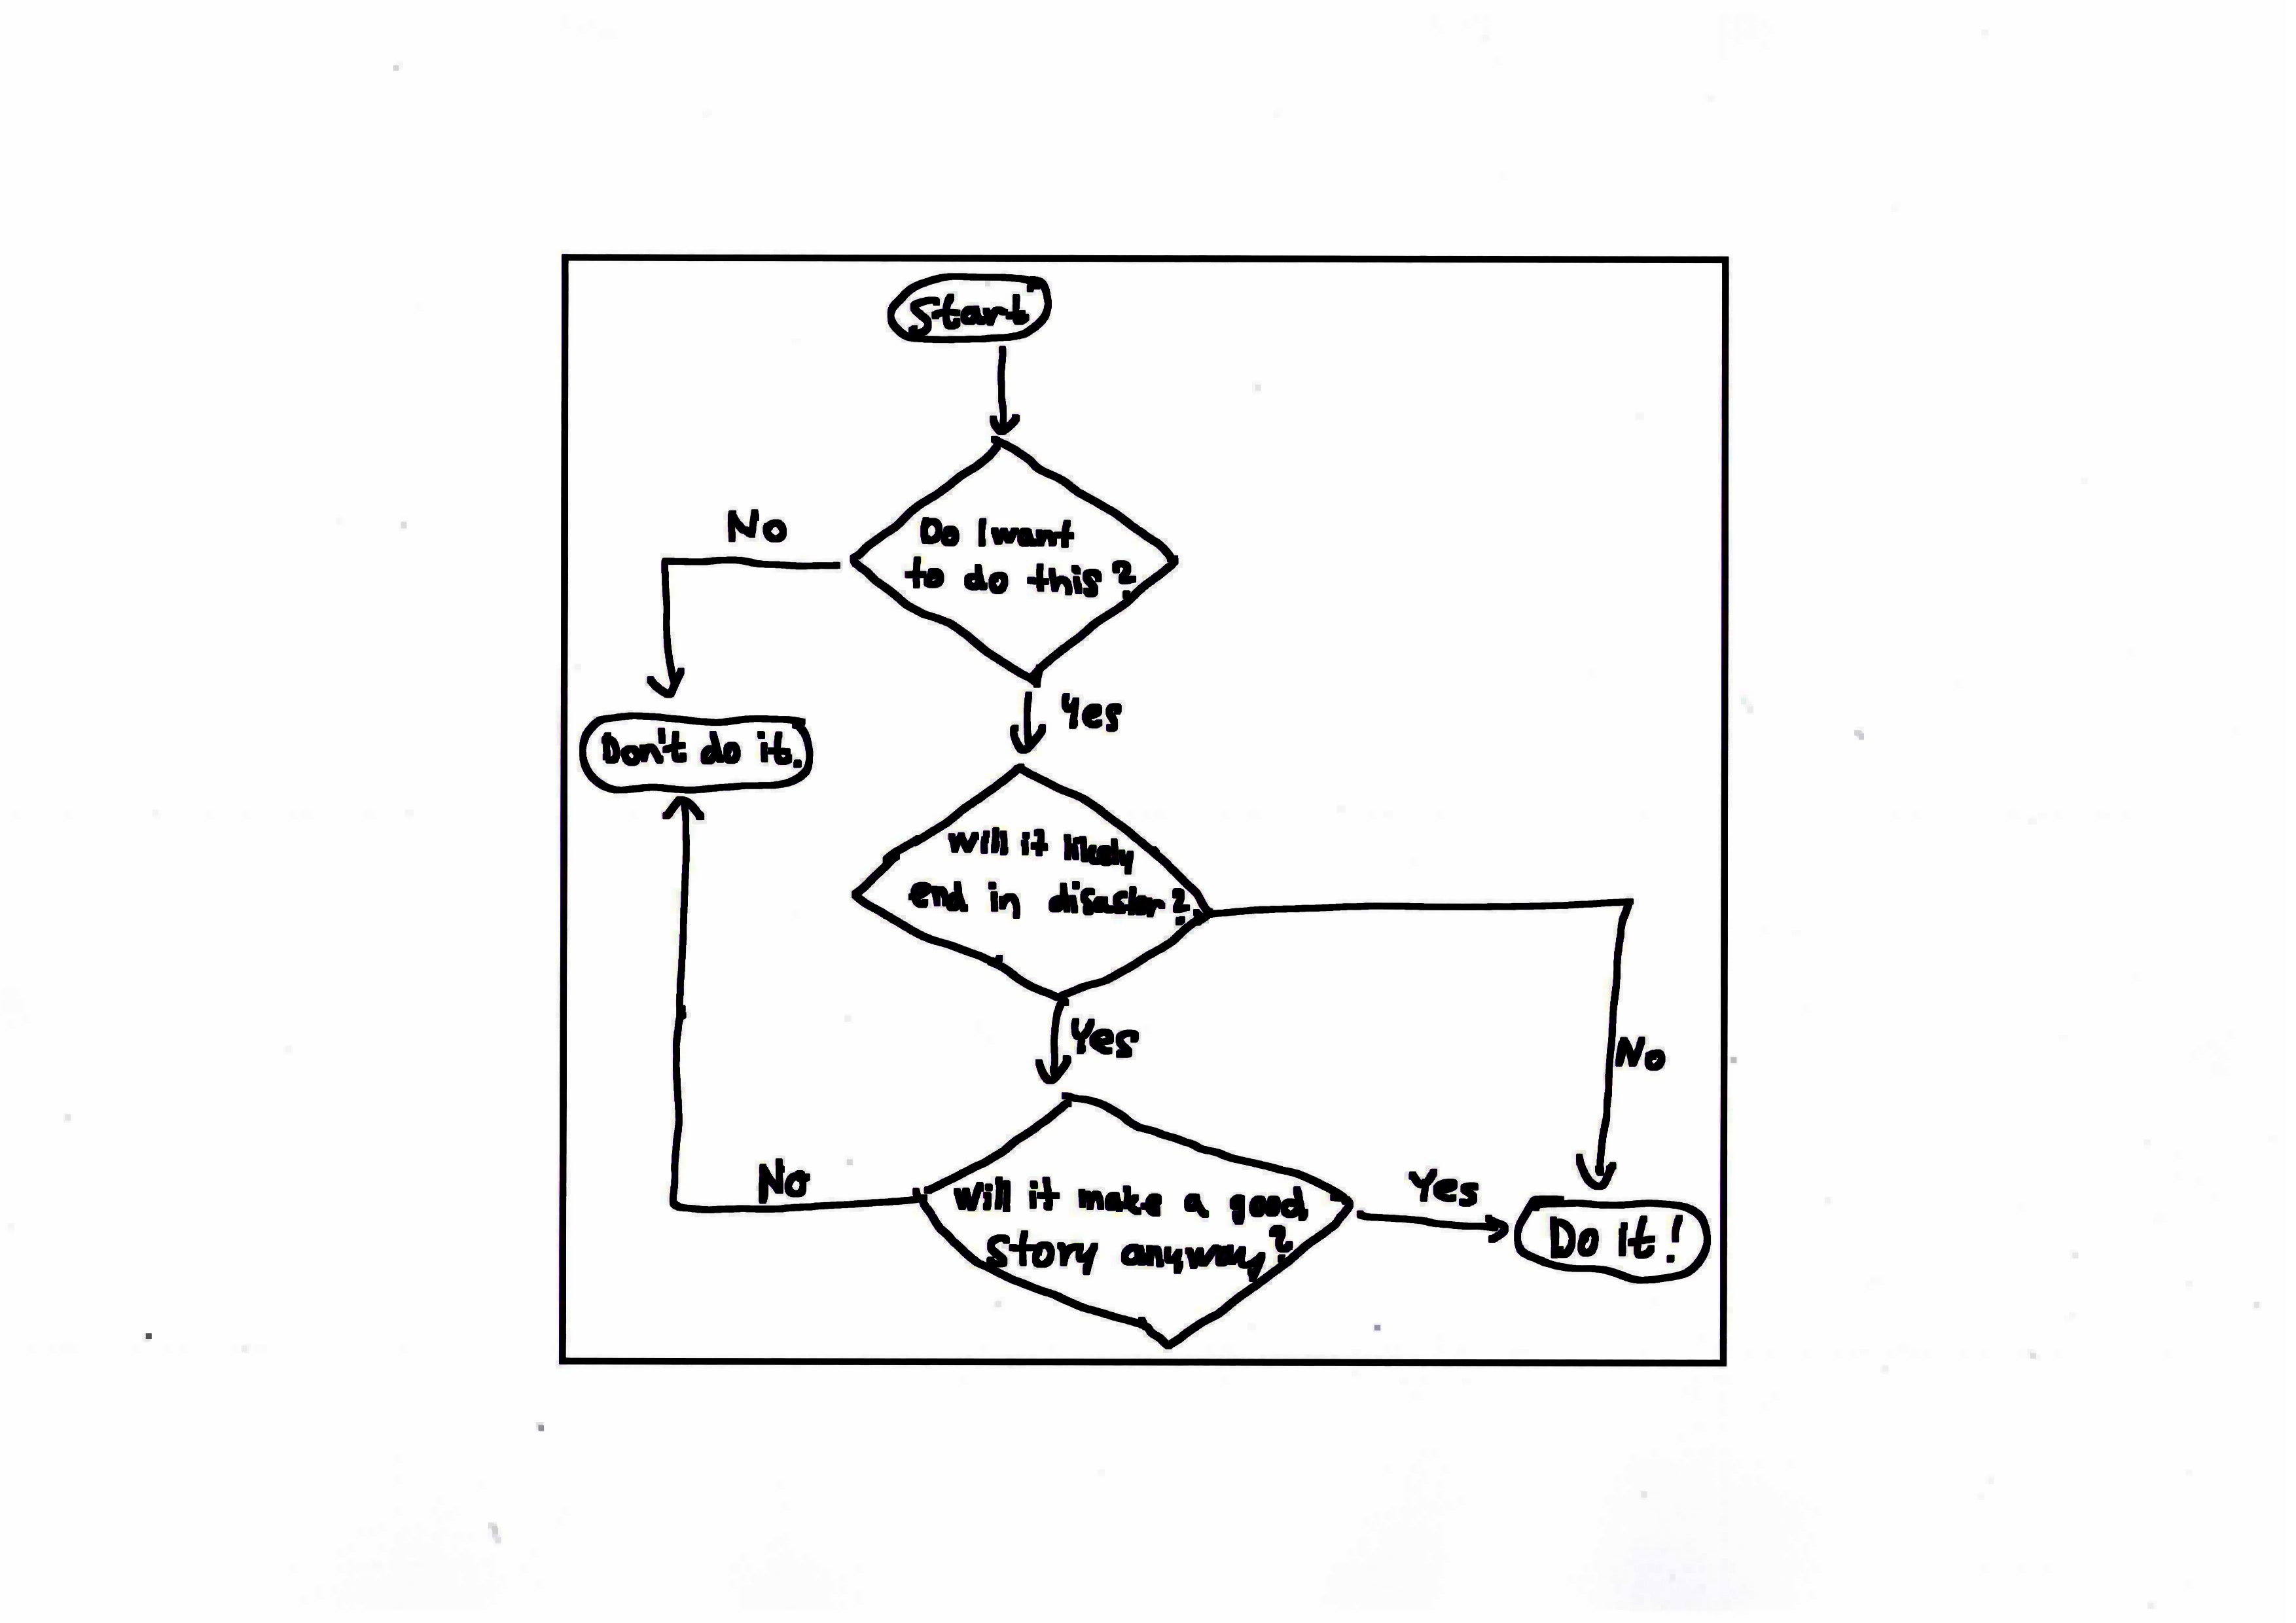 Start
Do I want
to do this?
No
Yes
Don't do it.
Will it likely
end in disaster?
Yes
No
Will it make a good
Story anyway?
No
Yes
Do it!